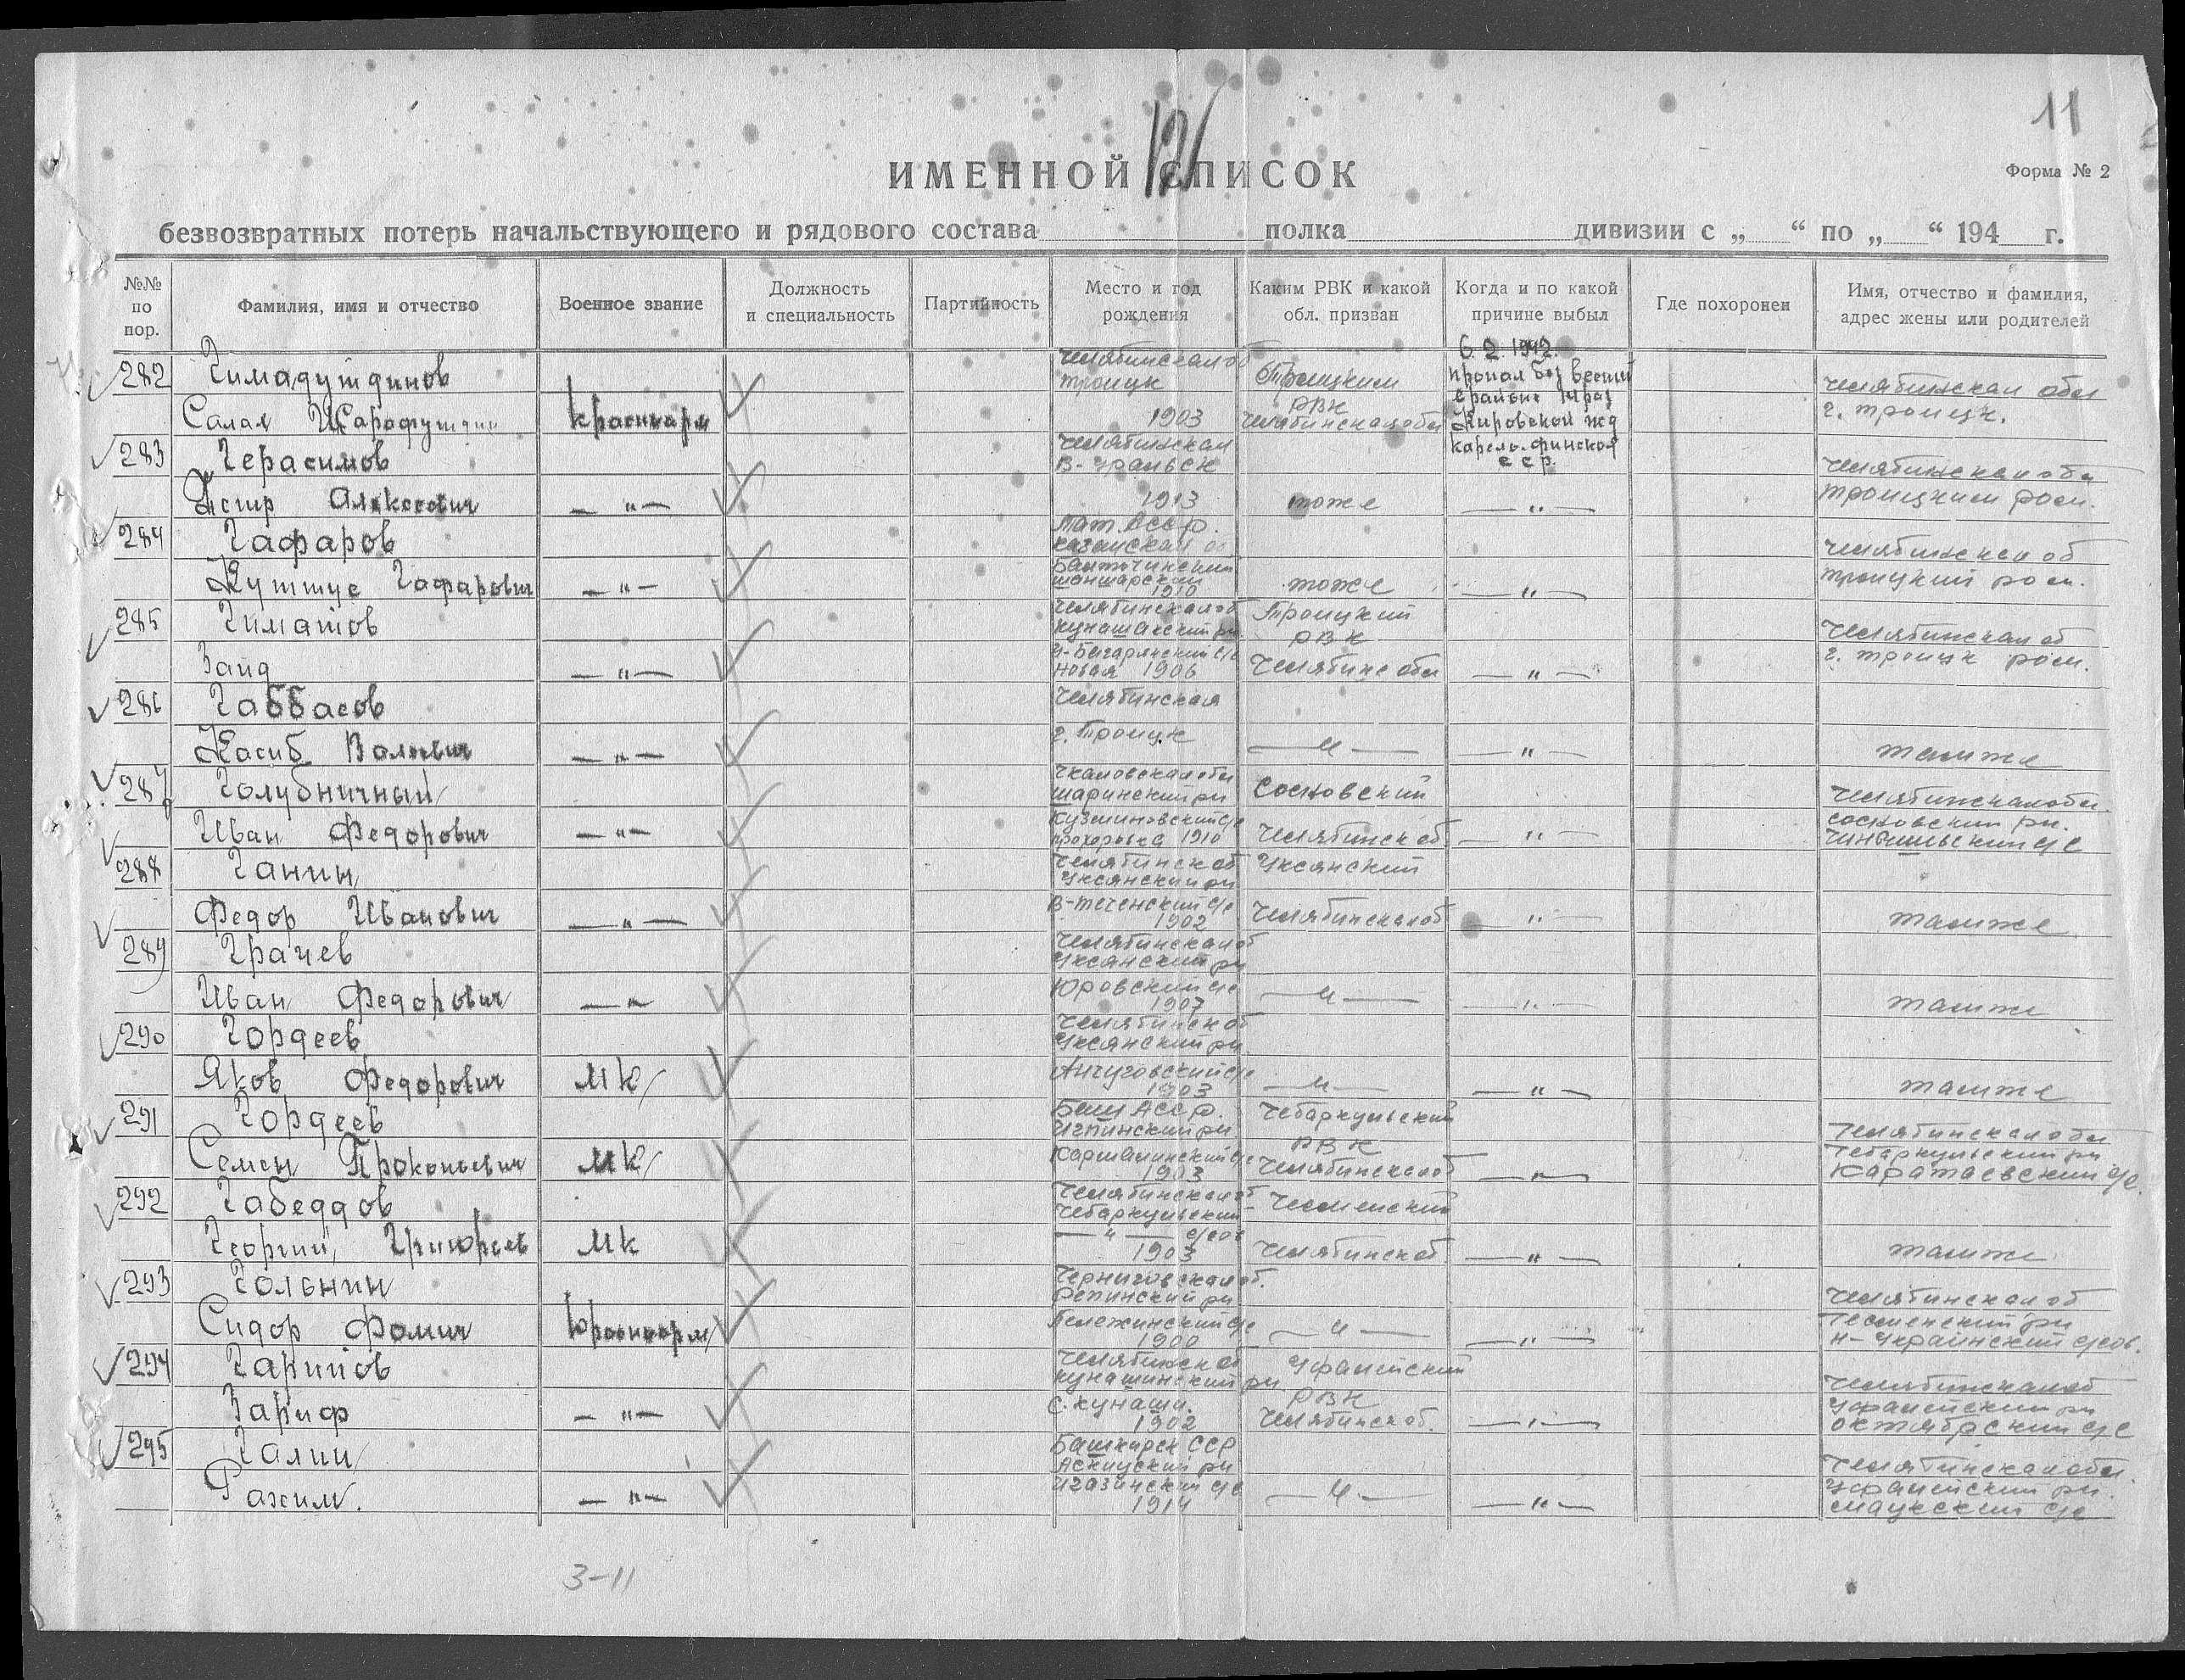 11
121
ИМЕННОЙ СПИСОК
Форма № 2
безвозвратных потерь начальствующего и рядового состава полка дивизии с „ “ по „ “ 194 г.
№№ по пор.
Фамилия, имя и отчество
Военное звание
Должность и специальность
Партийность
Место и год рождения
Каким РВК и какой обл. призван
Когда и по какой причине выбыл
Где похоронен
Имя, отчество и фамилия, адрес жены или родителей
282 Гимадутдинов
Челябинская об
Троицк
Троицким
6.2.1942.
пропал без вести
в районе
Челябинская обл
Салах
Красноарм
1903
РВК
Челябинская обл
Кировской жд
г. Троицк.
283 Герасимов
Челябинская
В-Уральск
Карело-финской
сср.
Челябинская об
Алексеевич
— " —
1913
тоже
— " —
Троицкий
284 Гафаров
Тат. АССР.
Казанская об
Челябинская об
Гафарович
— " —
1910
тоже
— " —
Троицкий
285 Гиматов
Челябинская об
Кунашакский рн
Троицкий
РВК
Челябинская об
Заид
— " —
Новая 1906
Челябинс обл
— " —
г. Троицк
286 Габбасов
Челябинская
Касиб Валиевич
— " —
г. Троицк
— " —
— " —
тамже
287 Голубничный
Чкаловская обл
Шаринский рн
Сосновский
Челябинская обл.
Сосновский рн.
Иван Федорович
— " —
1910
Челябинск об
— " —
288 Ганин
Челябинск об
Уксянский рн
Уксянский
Федор Иванович
— " —
В-Теченский с/с
1902
Челябинская об
— " —
тамже
289 Грачев
Челябинская об
Уксянский рн
Иван Федорович
— "
Юровский с/с
1907
— " —
— " —
тамже
290 Гордеев
Челябинск об
Уксянский рн
Яков Федорович
МК
Анчуговский с/с
1903
— " —
— " —
тамже
291 Гордеев
Баш АССР.
Чебаркульский
РВК
Челябинская обл
Чебаркульский рн
Семен Прокопьевич
МК
1903
Челябинская об
— " —
Каратаевский с/с.
292 Габеддов
Челябинская об
Чебаркульский
Чесменский
Георгий Григорьев
МК
— " — с/сов
1903
Челябинск об
— " —
тамже
293 Гольнин
Черниговская об.
Репинский рн
Челябинская об
Чесменский рн
Сидор Фомич
Красноарм
1900
— " —
— " —
Н-Украинский с/сов.
294 Гарипов
Челябинск об
Кунашинский рн
Уфалейский
РВК
Челябинская об
Уфалейский рн
Зариф
— " —
с. Кунаша.
1902
Челябинск об.
— " —
Октябрский с/с
295 Галин
Башкирск ССР
Аскинский рн
Челябинская обл.
Уфалейский рн.
Рахим.
— " —
1914
— " —
— " —
Маукский с/с
3-11